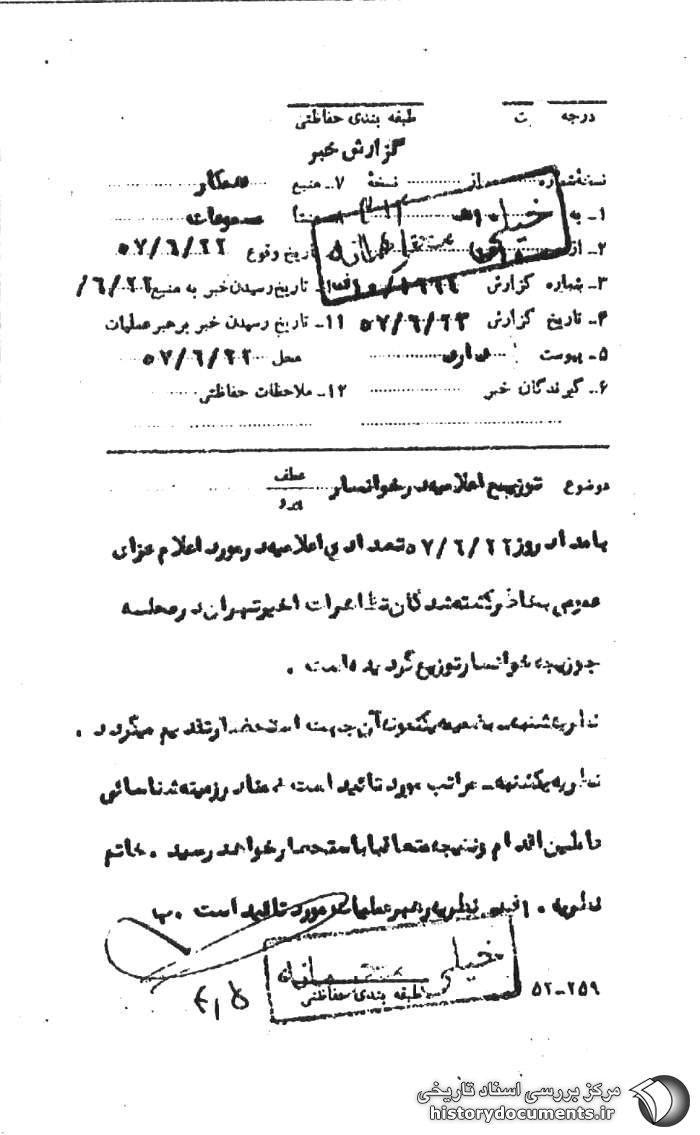 درجه ت طبقه بندی حفاظتی
گزارش خبر
نسخهٔ شماره از نسخهٔ ۷ـ منبع همکار
۱ـ به مسموعات
۲ـ از تاریخ وقوع ۵۷/۶/۲۲
۳ـ شماره گزارش تاریخ رسیدن خبر به منبع ۶/۲۲/
۴ـ تاریخ گزارش ۵۷/۶/۲۳ ۱۱ـ تاریخ رسیدن خبر برهبر عملیات
۵ـ پیوست ندارد محل ۵۷/۶/۲۲
۶ـ گیرندگان خبر ۱۲ـ ملاحظات حفاظتی
خیلی محرمانه
موضوع توزیع اعلامیه در خوانسار عطف
پیرو
بامداد روز ۵۷/۶/۲۲ تعدادی اعلامیه در مورد اعلام عزای
عمومی بخاطر کشته شدگان تظاهرات اخیر تهران در محله
جوزچه خوانسار توزیع گردیده است .
نظریه شنبه ـ بضمیمه یکنمونه آن جهت استحضار تقدیم میگردد .
نظریه یکشنبه ـ مراتب مورد تائید است ضمناً در زمینه شناسائی
عاملین اقدام و نتیجه متعاقباً باستحضار خواهد رسید . خاتم
نظریه . رهبر عملیات مورد تائید است . ب
خیلی محرمانه
طبقه بندی حفاظتی
۵۲-۲۵۹
مرکز بررسی اسناد تاریخی
historydocuments.ir